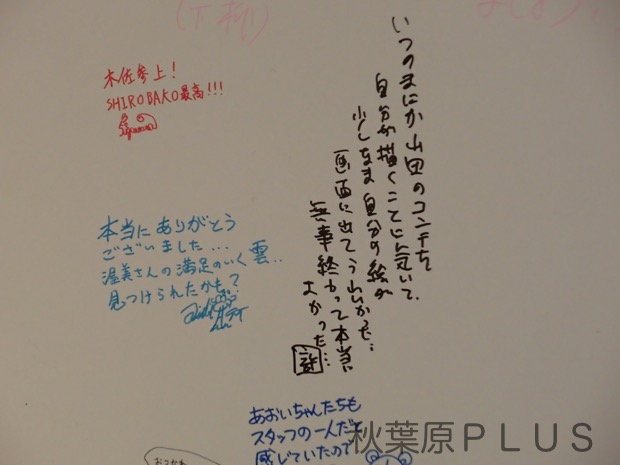 木佐参上!
SHIROBAKO最高!!!
いつのまにか山田のコンテを
自分が描くことに気いて、
少しなま自分の絵が
画面に出てうれしかった…
無事終わって本当に
よかった…
本当にありがとう
ございました...
渥美さんの満足のいく雲..
見つけられたかも?
あおいちゃんたちも
スタッフの一人だと
感じていたので
おつかれ
秋葉原PLUS